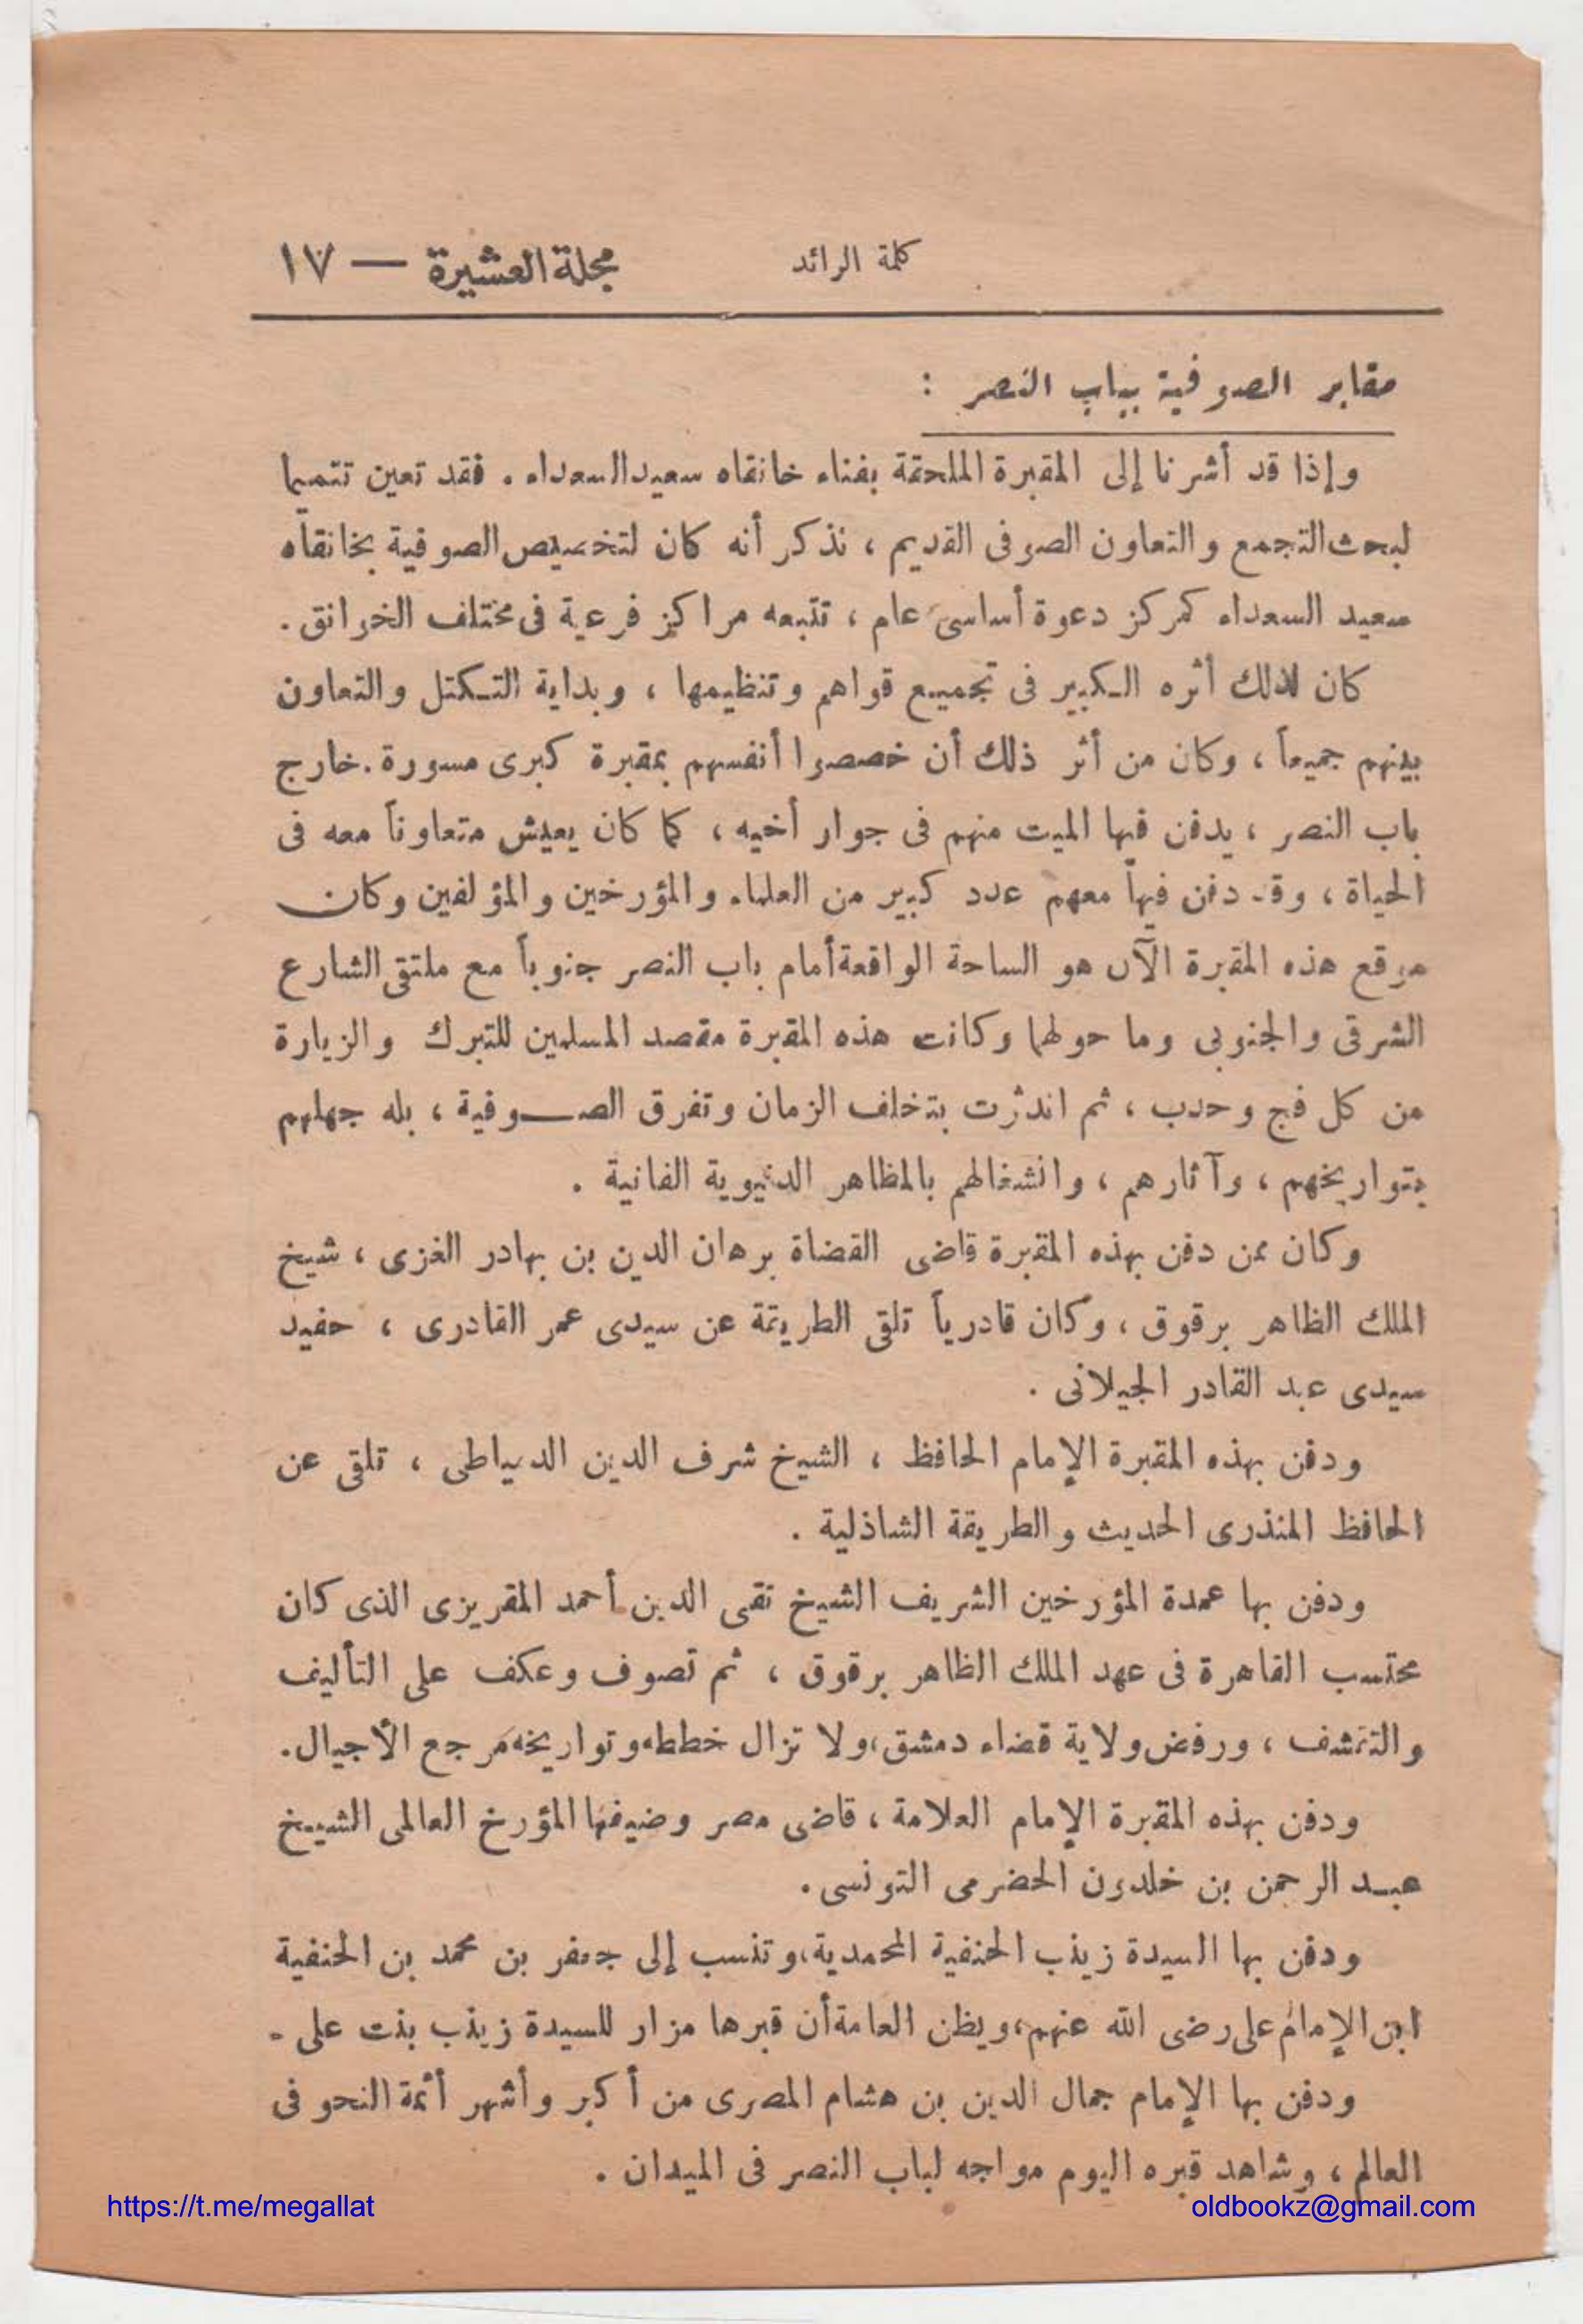 كلمة الرائد
مجلة العشيرة — ١٧
مقابر الصوفية بباب النصر :
وإذا قد أشرنا إلى المقبرة الملحقة بفناء خانقاه سعيد السعداء . فقد تعين تتميما
لبحث التجمع والتعاون الصوفى القديم ، نذكر أنه كان لتخصيص الصوفية بخانقاه
سعيد السعداء كمركز دعوة أساسى عام ، تتبعه مراكز فرعية فى مختلف الخوانق .
كان لذلك أثره الكبير فى تجميع قواهم وتنظيمها ، وبداية التكتل والتعاون
بينهم جميعاً ، وكان من أثر ذلك أن خصصوا أنفسهم بمقبرة كبرى مسورة . خارج
باب النصر ، يدفن فيها الميت منهم فى جوار أخيه ، كما كان يعيش متعاوناً معه فى
الحياة ، وقد دفن فيها معهم عدد كبير من العلماء والمؤرخين والمؤلفين وكان
موقع هذه المقبرة الآن هو الساحة الواقعة أمام باب النصر جنوباً مع ملتقى الشارع
الشرقى والجنوبى وما حولها وكانت هذه المقبرة مقصد المسلمين للتبرك والزيارة
من كل فج وحدب ، ثم اندثرت بتخلف الزمان وتفرق الصوفية ، بله جهلهم
بتواريخهم ، وآثارهم ، وانشغالهم بالمظاهر الدنيوية الفانية .
وكان ممن دفن بهذه المقبرة قاضى القضاة برهان الدين بن بهادر الغزى ، شيخ
الملك الظاهر برقوق ، وكان قادرياً تلقى الطريقة عن سيدى عمر القادرى ، حفيد
سيدى عبد القادر الجيلانى .
ودفن بهذه المقبرة الإمام الحافظ ، الشيخ شرف الدين الدمياطى ، تلقى عن
الحافظ المنذرى الحديث والطريقة الشاذلية .
ودفن بها عمدة المؤرخين الشريف الشيخ تقى الدين أحمد المقريزى الذى كان
محتسب القاهرة فى عهد الملك الظاهر برقوق ، ثم تصوف وعكف على التأليف
والتقشف ، ورفض ولاية قضاء دمشق ، ولا تزال خططه وتواريخه مرجع الأجيال .
ودفن بهذه المقبرة الإمام العلامة ، قاضى مصر وضيفها المؤرخ العالمى الشيخ
عبد الرحمن بن خلدون الحضرمى التونسى .
ودفن بها السيدة زينب الحنفية المحمدية ، وتنسب إلى جعفر بن محمد بن الحنفية
ابن الإمام على رضى الله عنهم ، ويظن العامة أن قبرها مزار للسيدة زينب بنت على -
ودفن بها الإمام جمال الدين بن هشام المصرى من أكبر وأشهر أئمة النحو فى
العالم ، وشاهد قبره اليوم مواجه لباب النصر فى الميدان .
https://t.me/megallat
oldbookz@gmail.com